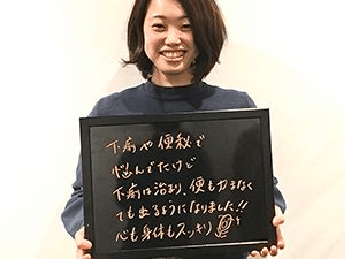 下痢や便秘で
悩んでたけど
下痢は治まり、便も力まなく
ても出るようになりました!!
心も身体もスッキリ